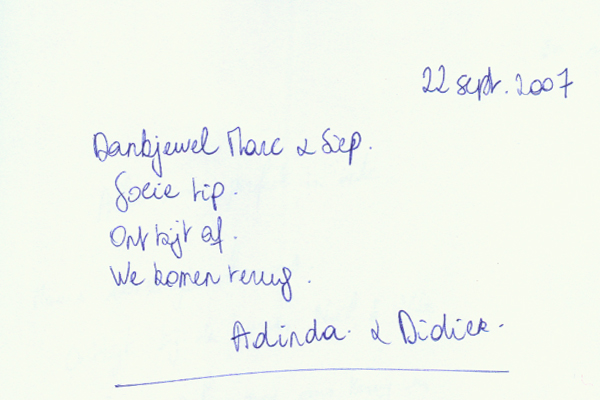 22 sept. 2007
Dankjewel Marc & Siep.
Goeie tip.
Ontbijt af.
We komen terug.
Adinda & Didier.